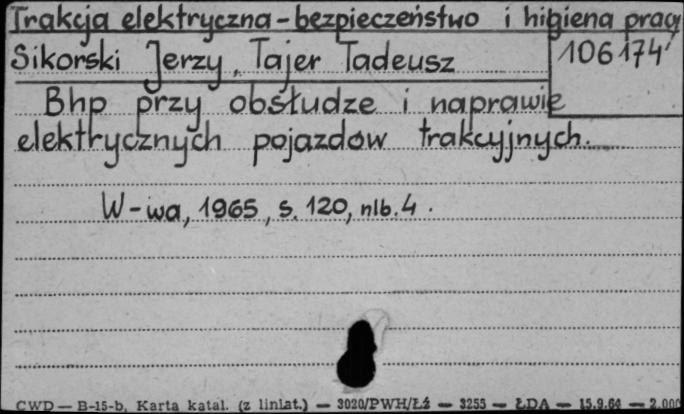 Trakcja elektryczna - bezpieczeństwo i higiena pracy
Sikorski Jerzy, Tajer Tadeusz
106174'
Bhp przy obsłudze i naprawie
elektrycznych pojazdów trakcyjnych.
W-wa, 1965, s. 120, nlb. 4.
CWD — B-15-b, Karta katal. (z liniat.) — 3020/PWH/Łź — 3255 — ŁDA — 15.9.64 — 2.000